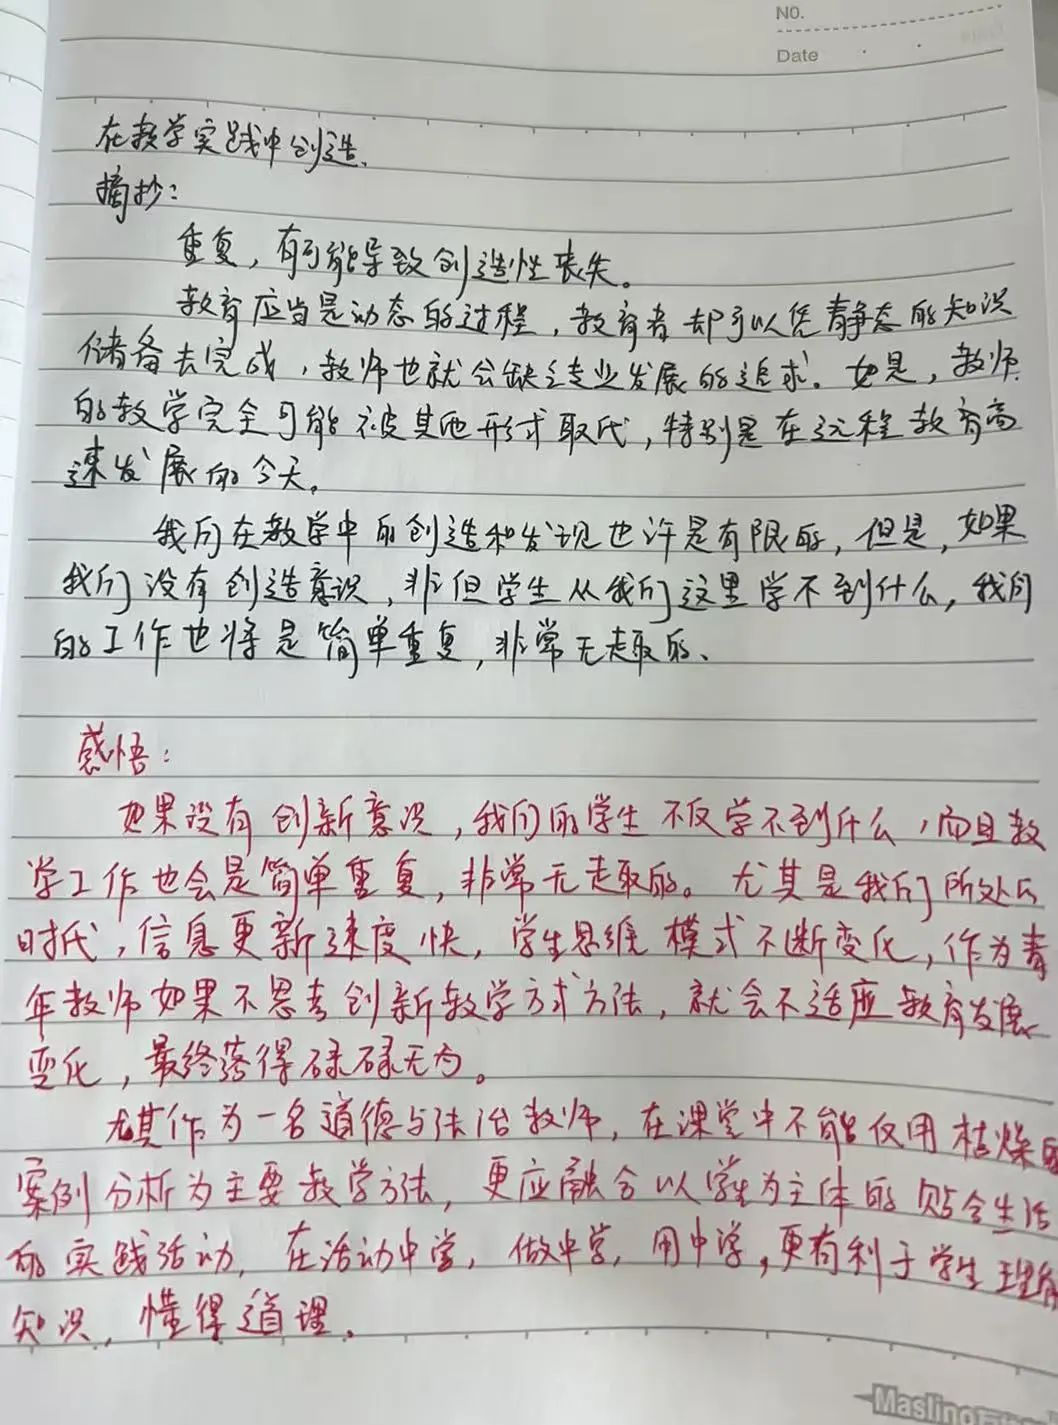 NO.
Date
在教学实践中创造.
摘抄：
重复，有可能导致创造性丧失。
教育应当是动态的过程，教育者却可以凭静态的知识
储备去完成，教师也就会缺乏专业发展的追求。如是，教师
的教学完全可能被其他形式取代，特别是在远程教育高
速发展的今天。
我们在教学中的创造和发现也许是有限的，但是，如果
我们没有创造意识，非但学生从我们这里学不到什么，我们
的工作也将是简单重复，非常无趣的、
感悟：
如果没有创新意识，我们的学生不仅学不到什么，而且教
学工作也会是简单重复，非常无趣的。尤其是我们所处的
时代，信息更新速度快，学生思维模式不断变化，作为青
年教师如果不思考创新教学方式方法，就会不适应教育发展
变化，最终落得碌碌无为。
尤其作为一名道德与法治教师，在课堂中不能仅用枯燥的
案例分析为主要教学方法，更应融合以学生为主体的贴合生活
的实践活动，在活动中学，做中学，用中学，更有利于学生理解
知识，懂得道理。
Maslino